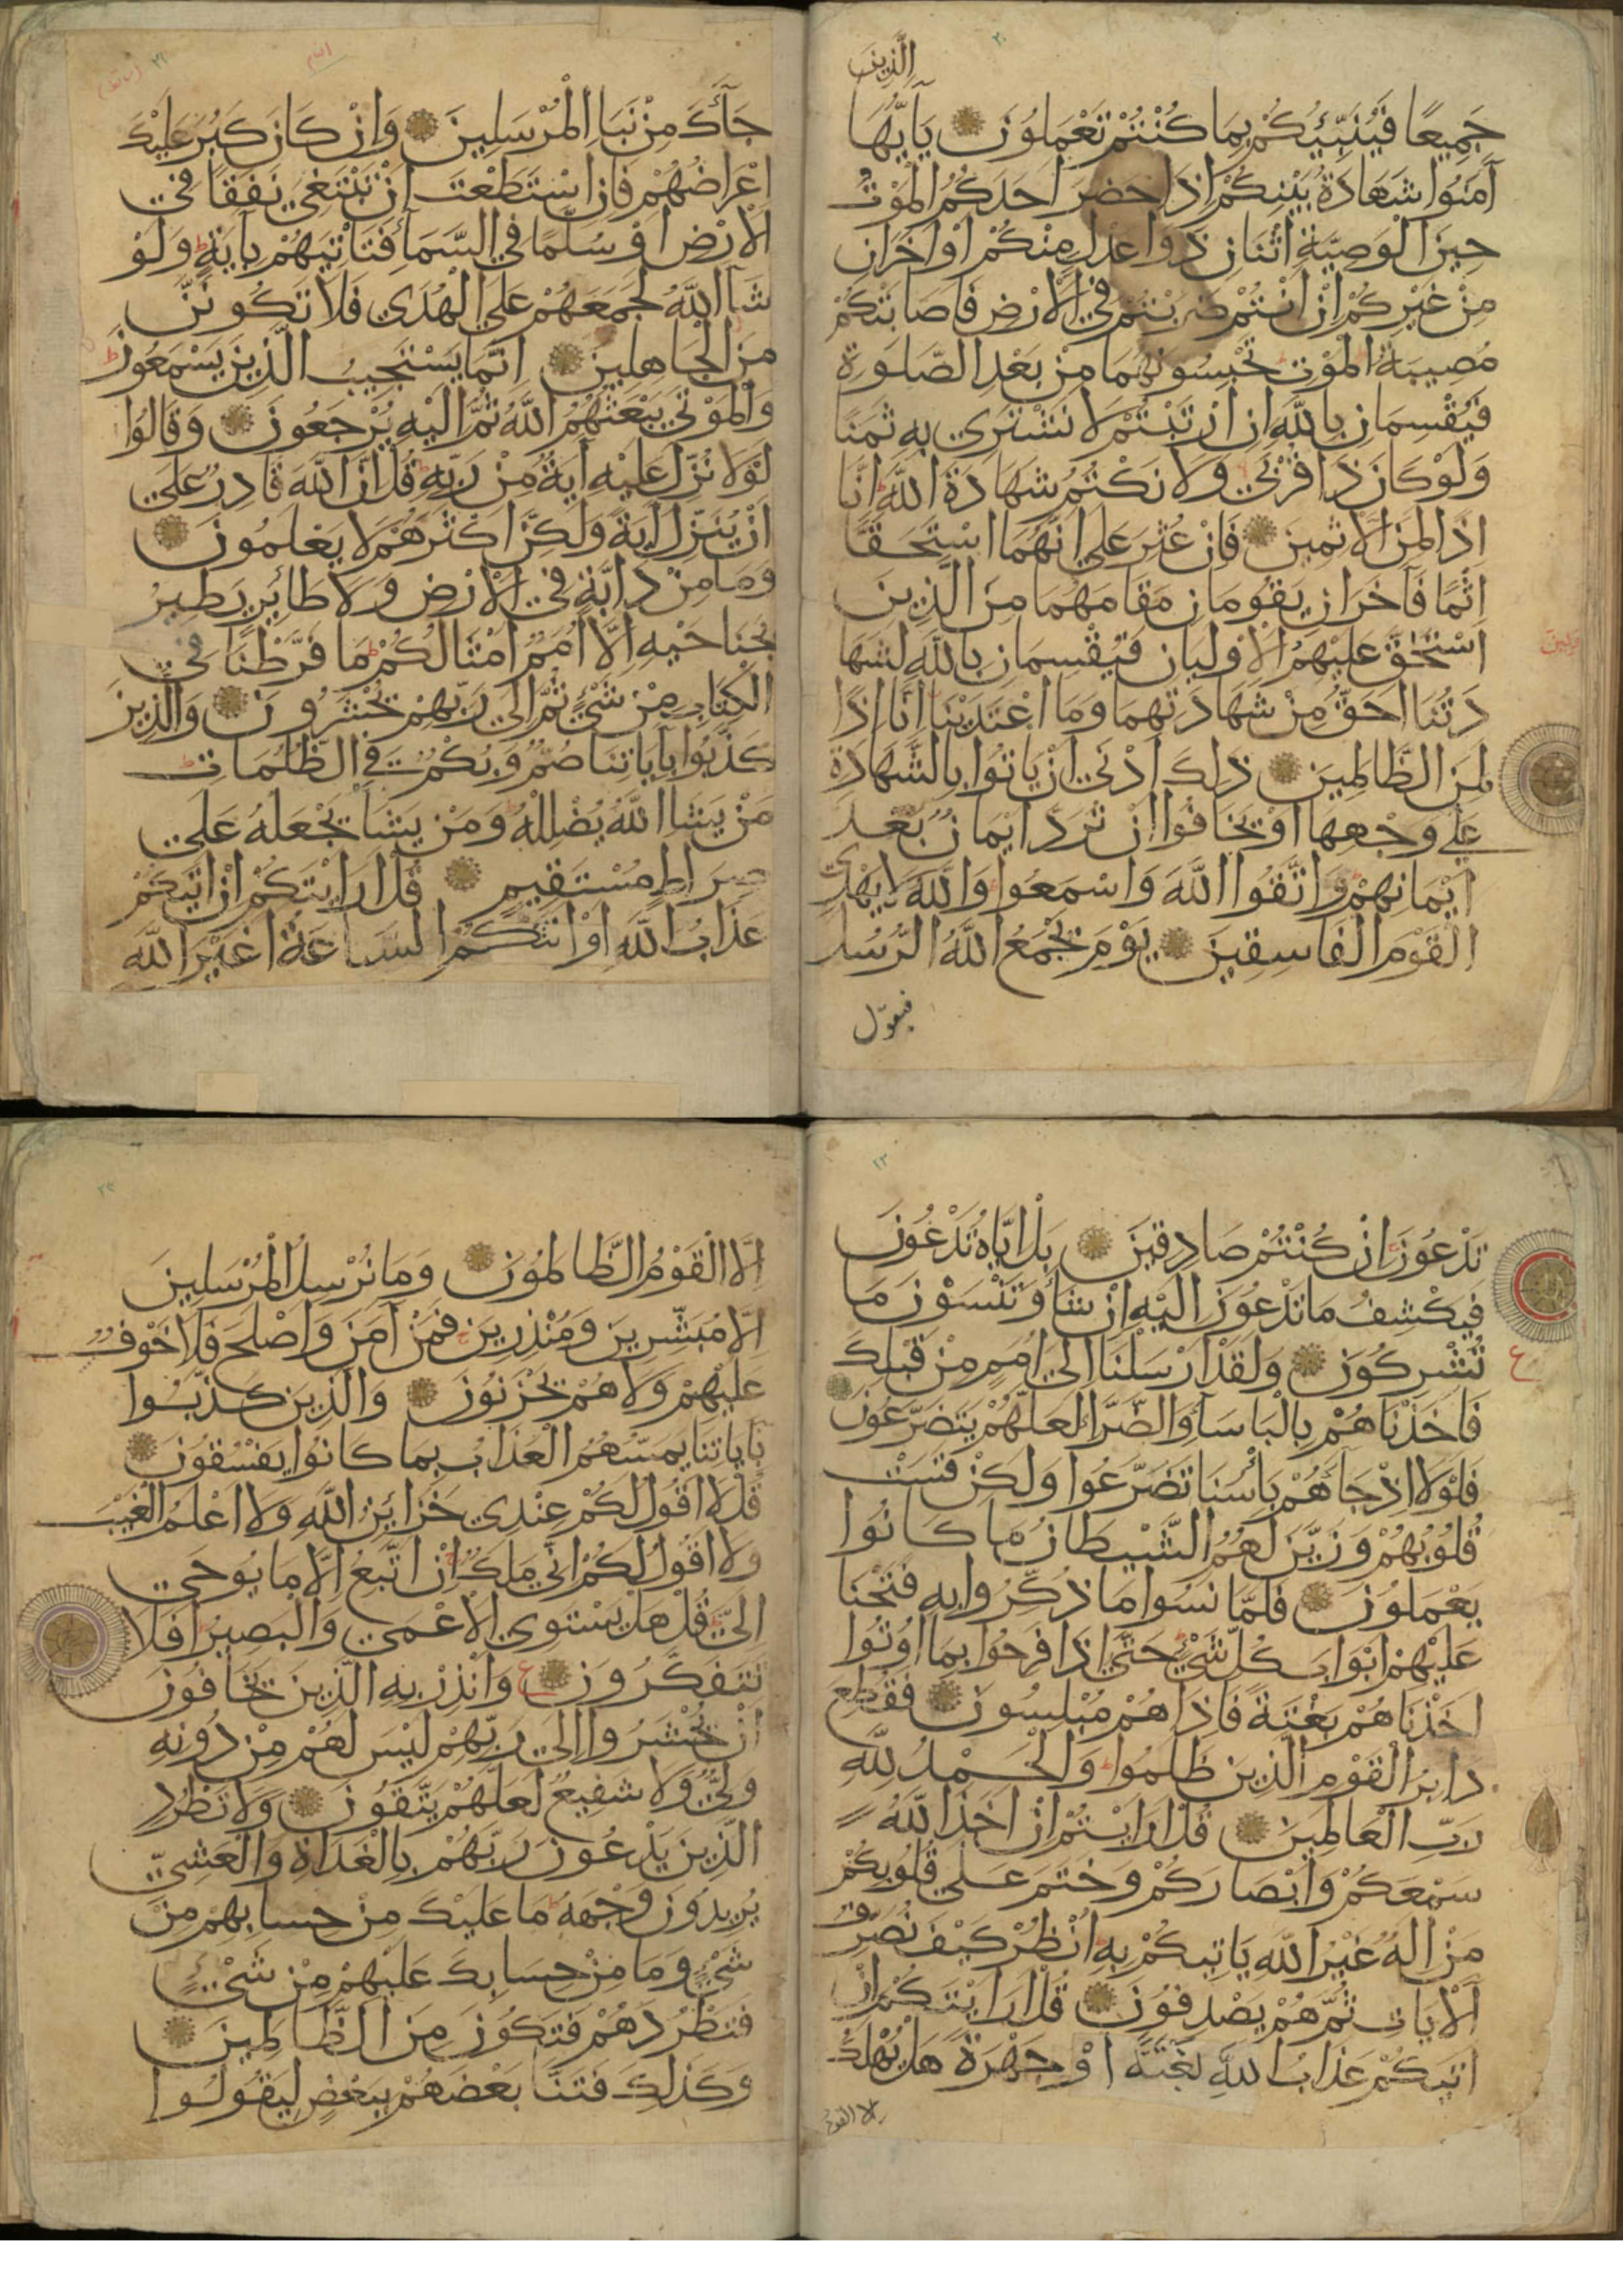 الَّذِينَ
جَمِيعًا فَيُنَبِّئُكُمْ بِمَا كُنْتُمْ تَعْمَلُونَ يَا أَيُّهَا
آمَنُوا شَهَادَةُ بَيْنِكُمْ اِذَا حَضَرَ اَحَدَكُمُ الْمَوْتُ
حِينَ الْوَصِيَّةِ اثْنَانِ ذَوَا عَدْلٍ مِنْكُمْ اَوْ اٰخَرَانِ
مِنْ غَيْرِكُمْ اِنْ اَنْتُمْ ضَرَبْتُمْ فِي الْاَرْضِ فَاَصَابَتْكُمْ
مُصِيبَةُ الْمَوْتِ تَحْبِسُونَهُمَا مِنْ بَعْدِ الصَّلٰوةِ
فَيُقْسِمَانِ بِاللّٰهِ اِنِ ارْتَبْتُمْ لَا نَشْتَرِي بِهِ ثَمَنًا
وَلَوْ كَانَ ذَا قُرْبَى وَلَا نَكْتُمُ شَهَادَةَ اللّٰهِ اِنَّا
اِذًا لَمِنَ الْاٰثِمِينَ فَاِنْ عُثِرَ عَلَى اَنَّهُمَا اسْتَحَقَّا
اِثْمًا فَآخَرَانِ يَقُومَانِ مَقَامَهُمَا مِنَ الَّذِينَ
اسْتَحَقَّ عَلَيْهِمُ الْاَوْلَيَانِ فَيُقْسِمَانِ بِاللّٰهِ لَشَهَا
دَتُنَا اَحَقُّ مِنْ شَهَادَتِهِمَا وَمَا اعْتَدَيْنَا اِنَّا اِذًا
لَمِنَ الظَّالِمِينَ ذٰلِكَ اَدْنَى اَنْ يَاْتُوا بِالشَّهَادَةِ
عَلَى وَجْهِهَا اَوْ يَخَافُوا اَنْ تُرَدَّ اَيْمَانٌ بَعْدَ
اَيْمَانِهِمْ وَاتَّقُوا اللّٰهَ وَاسْمَعُوا وَاللّٰهُ لَا يَهْدِي
الْقَوْمَ الْفَاسِقِينَ يَوْمَ يَجْمَعُ اللّٰهُ الرُّسُلَ
فيقول
جَآءَكَ مِنْ نَبَاِ الْمُرْسَلِينَ وَاِنْ كَانَ كَبُرَ عَلَيْكَ
اِعْرَاضُهُمْ فَاِنِ اسْتَطَعْتَ اَنْ تَبْتَغِيَ نَفَقًا فِي
الْاَرْضِ اَوْ سُلَّمًا فِي السَّمَآءِ فَتَاْتِيَهُمْ بِآيَةٍ وَلَوْ
شَآءَ اللّٰهُ لَجَمَعَهُمْ عَلَى الْهُدَى فَلَا تَكُونَنَّ
مِنَ الْجَاهِلِينَ اِنَّمَا يَسْتَجِيبُ الَّذِينَ يَسْمَعُونَ
وَالْمَوْتَى يَبْعَثُهُمُ اللّٰهُ ثُمَّ اِلَيْهِ يُرْجَعُونَ وَقَالُوا
لَوْلَا نُزِّلَ عَلَيْهِ آيَةٌ مِنْ رَبِّهِ قُلْ اِنَّ اللّٰهَ قَادِرٌ عَلَى
اَنْ يُنَزِّلَ آيَةً وَلَكِنَّ اَكْثَرَهُمْ لَا يَعْلَمُونَ
وَمَا مِنْ دَابَّةٍ فِي الْاَرْضِ وَلَا طَائِرٍ يَطِيرُ
بِجَنَاحَيْهِ اِلَّا اُمَمٌ اَمْثَالُكُمْ مَا فَرَّطْنَا فِي
الْكِتَابِ مِنْ شَيْءٍ ثُمَّ اِلَى رَبِّهِمْ يُحْشَرُونَ وَالَّذِينَ
كَذَّبُوا بِآيَاتِنَا صُمٌّ وَبُكْمٌ فِي الظُّلُمَاتِ
مَنْ يَشَاِ اللّٰهُ يُضْلِلْهُ وَمَنْ يَشَاْ يَجْعَلْهُ عَلَى
صِرَاطٍ مُسْتَقِيمٍ قُلْ اَرَاَيْتَكُمْ اِنْ اَتٰيكُمْ
عَذَابُ اللّٰهِ اَوْ اَتَتْكُمُ السَّاعَةُ اَغَيْرَ اللّٰهِ
تَدْعُونَ اِنْ كُنْتُمْ صَادِقِينَ بَلْ اِيَّاهُ تَدْعُونَ
فَيَكْشِفُ مَا تَدْعُونَ اِلَيْهِ اِنْ شَآءَ وَتَنْسَوْنَ مَا
تُشْرِكُونَ وَلَقَدْ اَرْسَلْنَا اِلَى اُمَمٍ مِنْ قَبْلِكَ
فَاَخَذْنَاهُمْ بِالْبَاْسَآءِ وَالضَّرَّآءِ لَعَلَّهُمْ يَتَضَرَّعُونَ
فَلَوْلَا اِذْ جَآءَهُمْ بَاْسُنَا تَضَرَّعُوا وَلَكِنْ قَسَتْ
قُلُوبُهُمْ وَزَيَّنَ لَهُمُ الشَّيْطَانُ مَا كَانُوا
يَعْمَلُونَ فَلَمَّا نَسُوا مَا ذُكِّرُوا بِهِ فَتَحْنَا
عَلَيْهِمْ اَبْوَابَ كُلِّ شَيْءٍ حَتَّى اِذَا فَرِحُوا بِمَا اُوتُوا
اَخَذْنَاهُمْ بَغْتَةً فَاِذَا هُمْ مُبْلِسُونَ فَقُطِعَ
دَابِرُ الْقَوْمِ الَّذِينَ ظَلَمُوا وَالْحَمْدُ لِلّٰهِ
رَبِّ الْعَالَمِينَ قُلْ اَرَاَيْتُمْ اِنْ اَخَذَ اللّٰهُ
سَمْعَكُمْ وَاَبْصَارَكُمْ وَخَتَمَ عَلَى قُلُوبِكُمْ
مَنْ اِلَهٌ غَيْرُ اللّٰهِ يَاْتِيكُمْ بِهِ اُنْظُرْ كَيْفَ نُصَرِّفُ
الْآيَاتِ ثُمَّ هُمْ يَصْدِفُونَ قُلْ اَرَاَيْتَكُمْ اِنْ
اَتٰيكُمْ عَذَابُ اللّٰهِ بَغْتَةً اَوْ جَهْرَةً هَلْ يُهْلَكُ
الا القوم
اِلَّا الْقَوْمُ الظَّالِمُونَ وَمَا نُرْسِلُ الْمُرْسَلِينَ
اِلَّا مُبَشِّرِينَ وَمُنْذِرِينَ فَمَنْ آمَنَ وَاَصْلَحَ فَلَا خَوْفٌ
عَلَيْهِمْ وَلَا هُمْ يَحْزَنُونَ وَالَّذِينَ كَذَّبُوا
بِآيَاتِنَا يَمَسُّهُمُ الْعَذَابُ بِمَا كَانُوا يَفْسُقُونَ
قُلْ لَا اَقُولُ لَكُمْ عِنْدِي خَزَائِنُ اللّٰهِ وَلَا اَعْلَمُ الْغَيْبَ
وَلَا اَقُولُ لَكُمْ اِنِّي مَلَكٌ اِنْ اَتَّبِعُ اِلَّا مَا يُوحَى
اِلَيَّ قُلْ هَلْ يَسْتَوِي الْاَعْمَى وَالْبَصِيرُ اَفَلَا
تَتَفَكَّرُونَ ع وَاَنْذِرْ بِهِ الَّذِينَ يَخَافُونَ
اَنْ يُحْشَرُوا اِلَى رَبِّهِمْ لَيْسَ لَهُمْ مِنْ دُونِهِ
وَلِيٌّ وَلَا شَفِيعٌ لَعَلَّهُمْ يَتَّقُونَ وَلَا تَطْرُدِ
الَّذِينَ يَدْعُونَ رَبَّهُمْ بِالْغَدَاةِ وَالْعَشِيِّ
يُرِيدُونَ وَجْهَهُ مَا عَلَيْكَ مِنْ حِسَابِهِمْ مِنْ
شَيْءٍ وَمَا مِنْ حِسَابِكَ عَلَيْهِمْ مِنْ شَيْءٍ
فَتَطْرُدَهُمْ فَتَكُونَ مِنَ الظَّالِمِينَ
وَكَذَلِكَ فَتَنَّا بَعْضَهُمْ بِبَعْضٍ لِيَقُولُوا